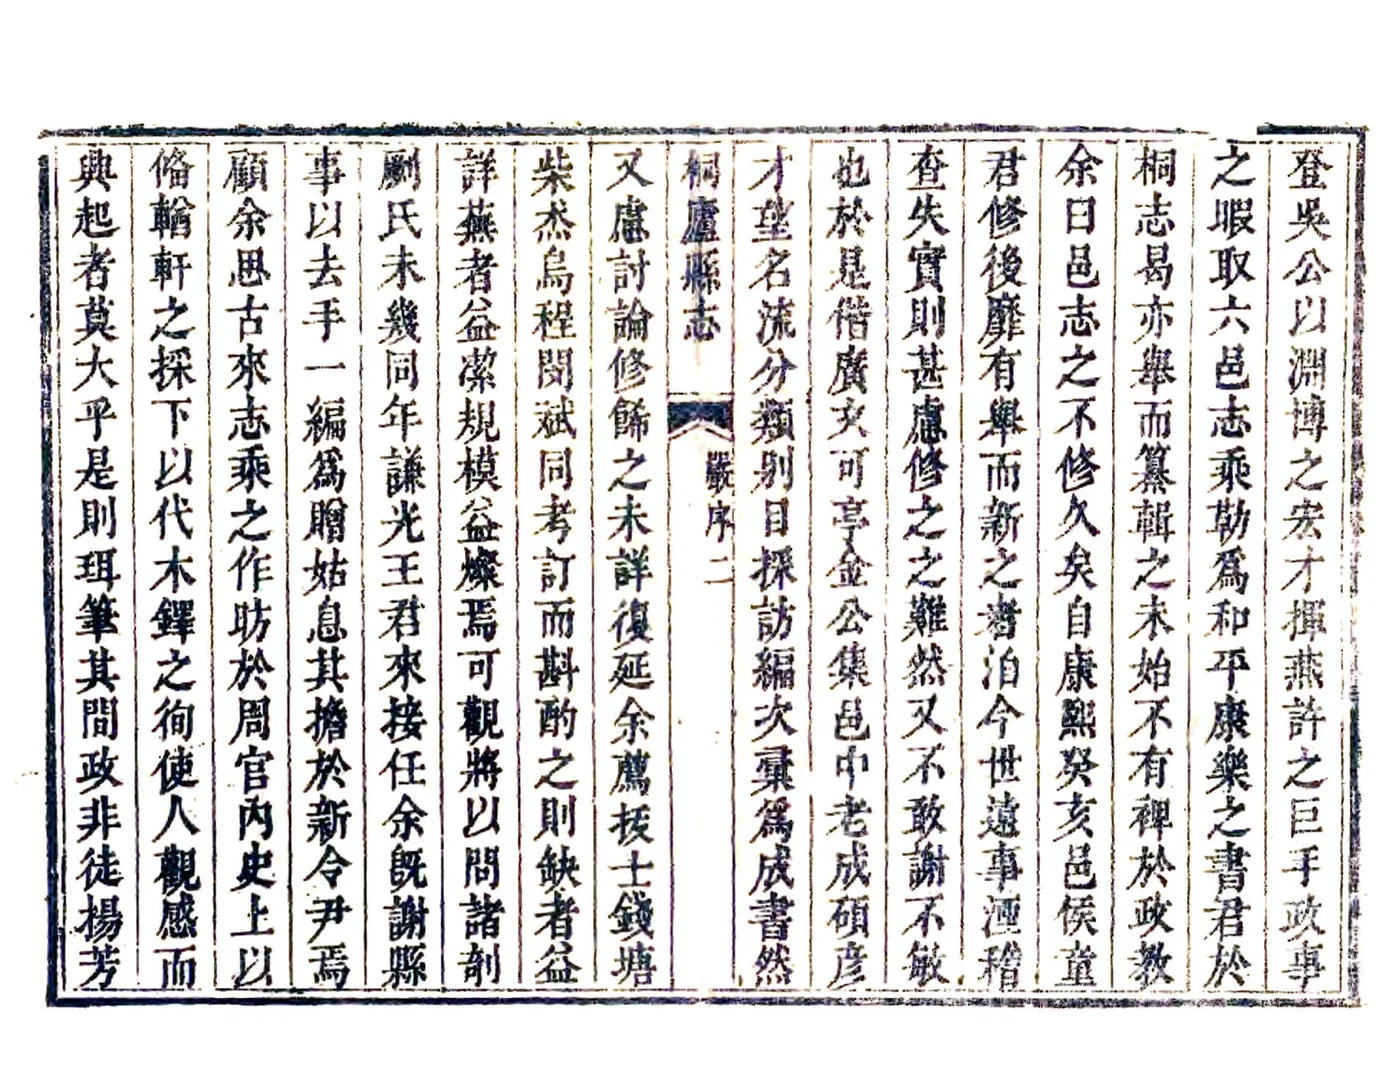 登吳公以淵博之宏才揮燕許之巨手政事
之暇取六邑志乘勒爲和平康樂之書君於
桐志曷亦舉而纂輯之未始不有裨於政教
余曰邑志之不修久矣自康熙癸亥邑侯童
君修後靡有舉而新之者洎今世遠事湮稽
查失實則甚慮修之之難然又不敢謝不敏
也於是偕廣文可亭金公集邑中老成碩彦
才望名流分類别目採訪編次彙爲成書然
桐廬縣志
嚴序
二
又慮討論修餙之未詳復延余薦拔士錢塘
柴杰烏程閔斌同考訂而斟酌之則缺者益
詳蕪者益潔規模益燦焉可觀將以問諸剞
劂氏未幾同年謙光王君來接任余旣謝縣
事以去手一編爲贈姑息其擔於新令尹焉
顧余思古來志乘之作昉於周官內史上以
偹輶軒之採下以代木鐸之徇使人觀感而
興起者莫大乎是則珥筆其間政非徒揚芳